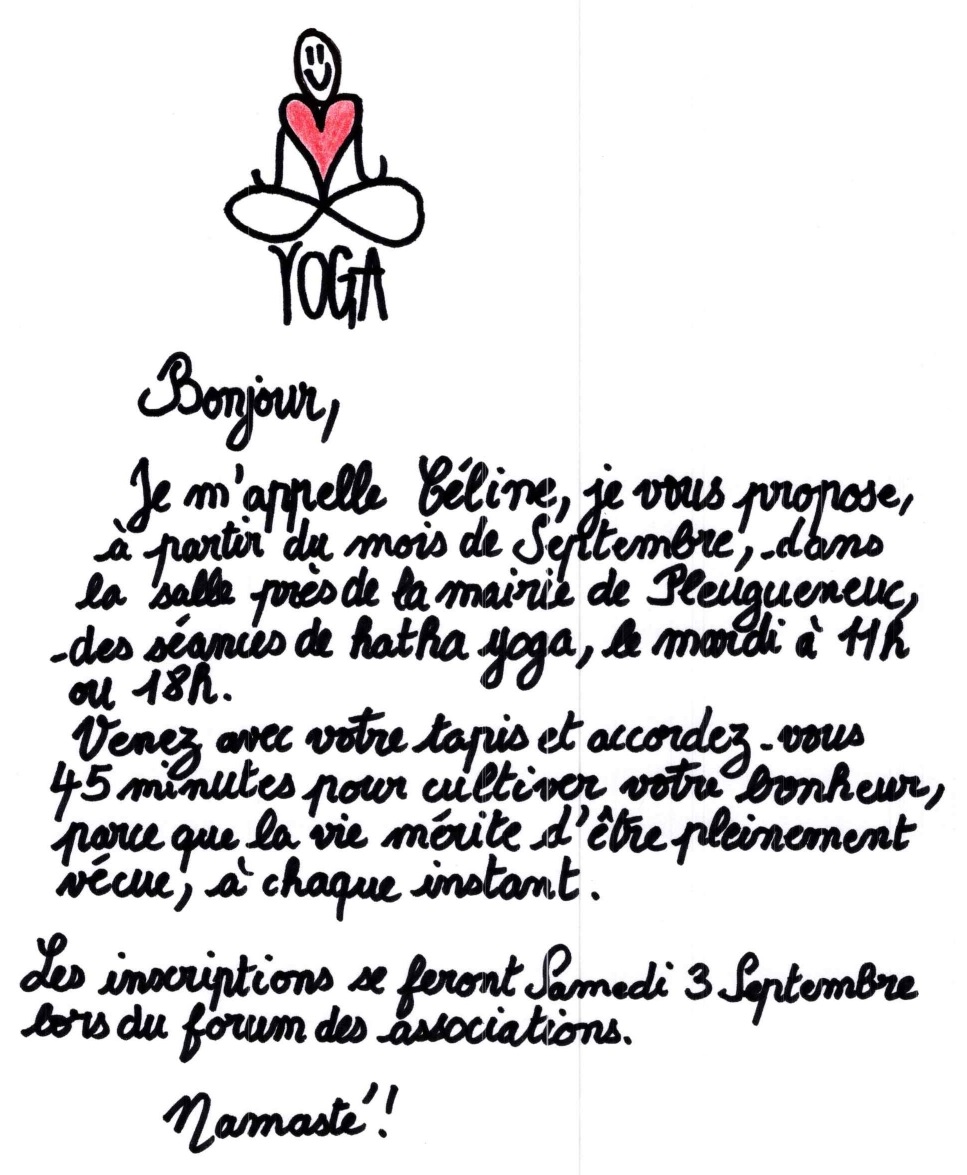 YOGA
Bonjour,
Je m'appelle Céline, je vous propose,
à partir du mois de Septembre, dans
la salle près de la mairie de Pleugueneuc,
des séances de hatha yoga, le mardi à 11h
ou 18h.
Venez avec votre tapis et accordez-vous
45 minutes pour cultiver votre bonheur,
parce que la vie mérite d'être pleinement
vécue, à chaque instant.
Les inscriptions se feront Samedi 3 Septembre
lors du forum des associations.
Namasté !